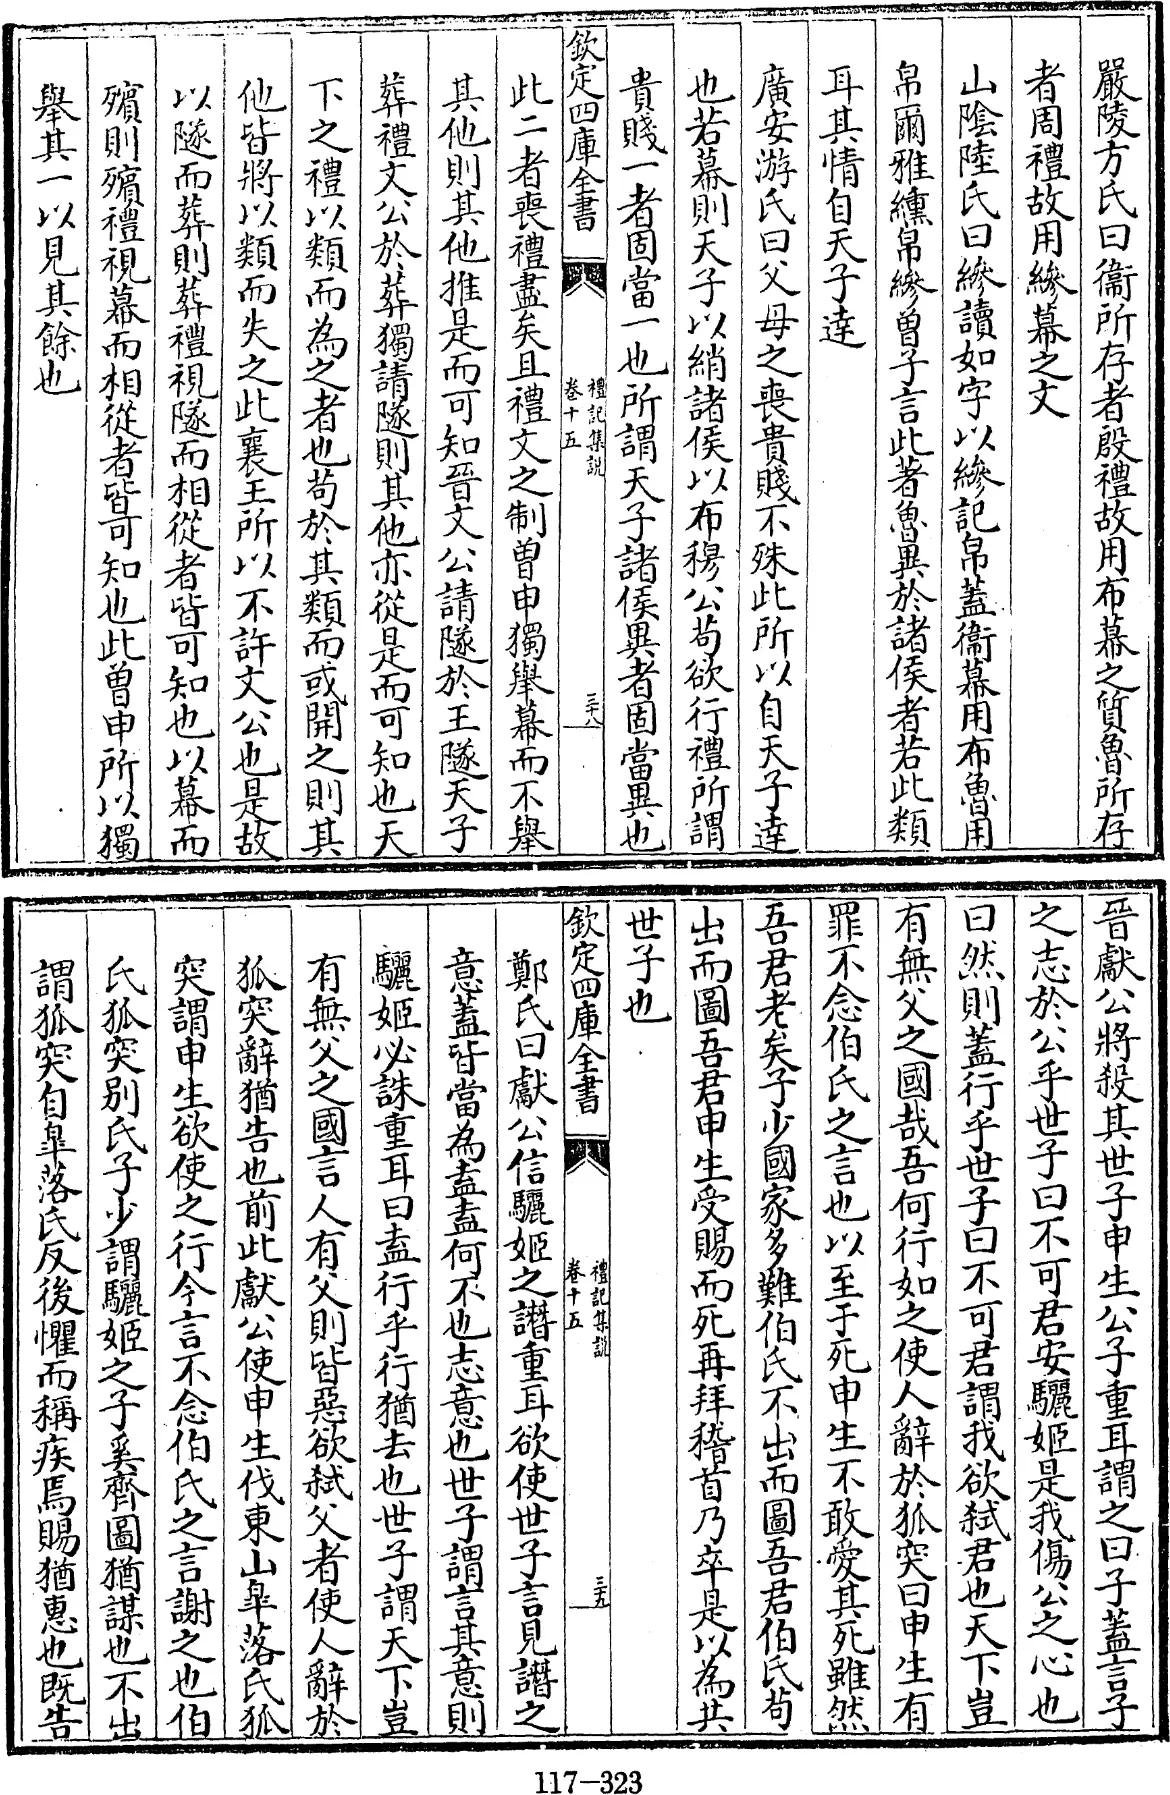 嚴陵方氏曰衞所存者殷禮故用布幕之質魯所存
者周禮故用縿幕之文
山陰陸氏曰縿讀如字以縿記帛蓋衞幕用布魯用
帛爾雅纁帛縿曾子言此著魯異於諸侯者若此類
耳其情自天子達
廣安游氏曰父母之喪貴賤不殊此所以自天子達
也若幕則天子以綃諸侯以布穆公苟欲行禮所謂
貴賤一者固當一也所謂天子諸侯異者固當異也
欽定四庫全書
禮記集說
卷十五
三十八
此二者喪禮盡矣且禮文之制曾申獨舉幕而不舉
其他則其他推是而可知晉文公請隧於王隧天子
葬禮文公於葬獨請隧則其他亦從是而可知也天
下之禮以類而為之者也苟於其類而或開之則其
他皆將以類而失之此襄王所以不許文公也是故
以隧而葬則葬禮視隧而相從者皆可知也以幕而
殯則殯禮視幕而相從者皆可知也此曾申所以獨
舉其一以見其餘也
晉獻公將殺其世子申生公子重耳謂之曰子蓋言子
之志於公乎世子曰不可君安驪姬是我傷公之心也
曰然則蓋行乎世子曰不可君謂我欲弑君也天下豈
有無父之國哉吾何行如之使人辭於狐突曰申生有
罪不念伯氏之言也以至于死申生不敢愛其死雖然
吾君老矣子少國家多難伯氏不出而圖吾君伯氏苟
出而圖吾君申生受賜而死再拜稽首乃卒是以為共
世子也
欽定四庫全書
禮記集說
卷十五
三十九
鄭氏曰獻公信驪姬之譖重耳欲使世子言見譖之
意蓋皆當為盍盍何不也志意也世子謂言其意則
驪姬必誅重耳曰盍行乎行猶去也世子謂天下豈
有無父之國言人有父則皆惡欲弑父者使人辭於
狐突辭猶告也前此獻公使申生伐東山皐落氏狐
突謂申生欲使之行今言不念伯氏之言謝之也伯
氏狐突别氏子少謂驪姬之子奚齊圖猶謀也不出
謂狐突自皐落氏反後懼而稱疾焉賜猶惠也既告
117-323